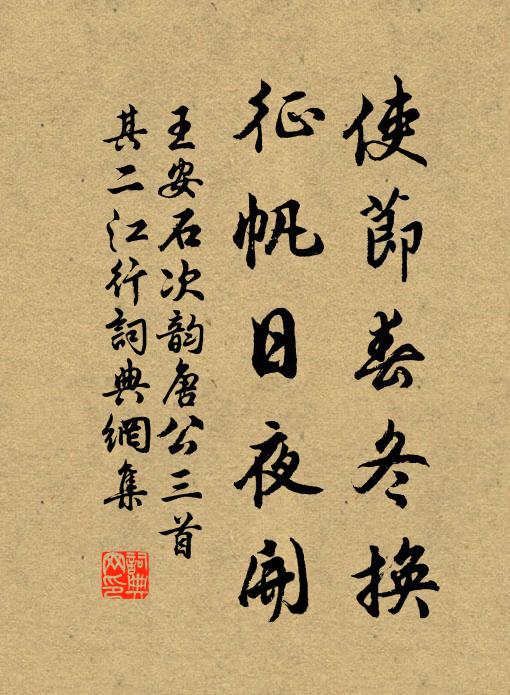 使節春冬換
征帆日夜開
王安石次韵唐公三首
其二江行詞典網集
詞典網印